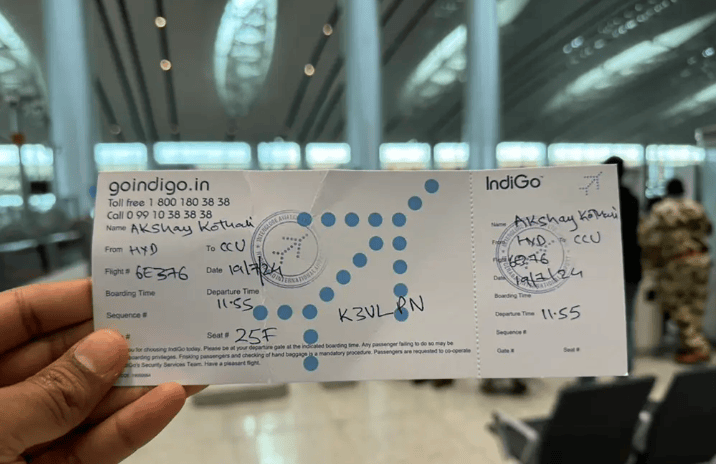 goindigo.in
Toll free 1 800 180 38 38
Call 0 99 10 38 38 38
Name AKshay Kothari
From HYD To CCU
Flight # 6E376 Date 19/7/24
Boarding Time Departure Time
11.55
Sequence #
Seat # 25F
K3VLPN
you for choosing IndiGo today. Please be at your departure gate at the indicated boarding time. Any passenger failing to do so may be
boarding privileges. Frisking passengers and checking of hand baggage is a mandatory procedure. Passengers are requested to co-operate
IndiGo's Security Services Team. Have a pleasant flight.
IndiGo
Name AKshay Kothari
From HYD CCU
Flight # 6E376
Date 19/7/24
Boarding Time
Departure Time 11.55
Sequence #
Gate # Seat #